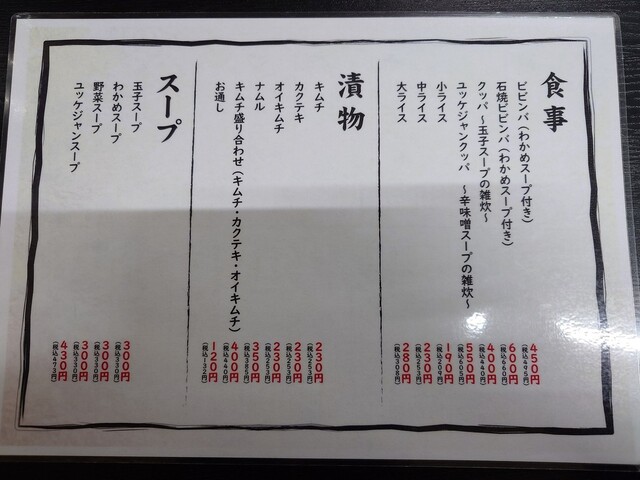 食事
ビビンバ(わかめスープ付き) 450円 (税込495円)
石焼ビビンバ(わかめスープ付き) 600円 (税込660円)
クッパ ～玉子スープの雑炊～ 400円 (税込440円)
ユッケジャンクッパ ～辛味噌スープの雑炊～ 550円 (税込605円)
小ライス 190円 (税込209円)
中ライス 230円 (税込253円)
大ライス 280円 (税込308円)
漬物
キムチ 230円 (税込253円)
カクテキ 230円 (税込253円)
オイキムチ 230円 (税込253円)
ナムル 350円 (税込385円)
キムチ盛り合わせ(キムチ・カクテキ・オイキムチ) 400円 (税込440円)
お通し 120円 (税込132円)
スープ
玉子スープ 300円 (税込330円)
わかめスープ 300円 (税込330円)
野菜スープ 300円 (税込330円)
ユッケジャンスープ 430円 (税込473円)